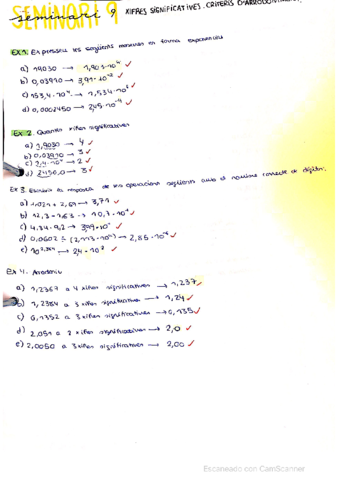 SEMINARI 9
seminari 9 XIFRES SIGNIFICATIVES. CRITERIS D'ARRODONIMENT
EX 1. Expresseu les següents mesures en forma exponencial
a) 19030 → 1,903·10⁴ ✓
b) 0,03910 → 3,91·10⁻² ✓
c) 153,4·10⁴ → 1,534·10⁶ ✓
d) 0,0002450 → 2,45·10⁻⁴ ✓
EX 2. Quantes xifres significatives
a) 3,9030 → 4 ✓
b) 0,03910 → 3 ✓
c) 2,4·10 → 2 ✓
d) 2450,0 → 3 ✓
EX 3. Escriviu la resposta de les operacions següents amb el nombre correcte de dígits.
a) + 2,69 → 3,71 ✓
b) 12,3 + 1,63 → ✓
c) 4,34·9,2 → ✓
d) 0,0602 ÷ → 2,85·10 ✓
e) → 24·10 ✓
EX 4. Arrodoniu
a) 1,2367 a 4 xifres significatives → 1,237 ✓
b) 1,2384 a 3 xifres significatives → 1,24 ✓
c) 0,1352 a 3 xifres significatives → 0,135 ✓
d) 2,051 a 2 xifres significatives → 2,0 ✓
e) 2,0050 a 3 xifres significatives → 2,00 ✓
Escaneado con CamScanner